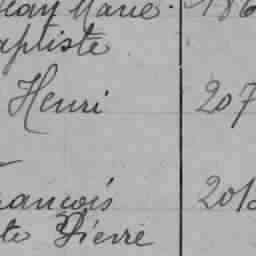 Jean Marie. 186
aptiste
Henri 207
rançois 201
te Pierre